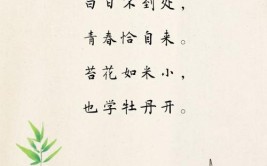 白日不到处，
青春恰自来。
苔花如米小，
也学牡丹开。